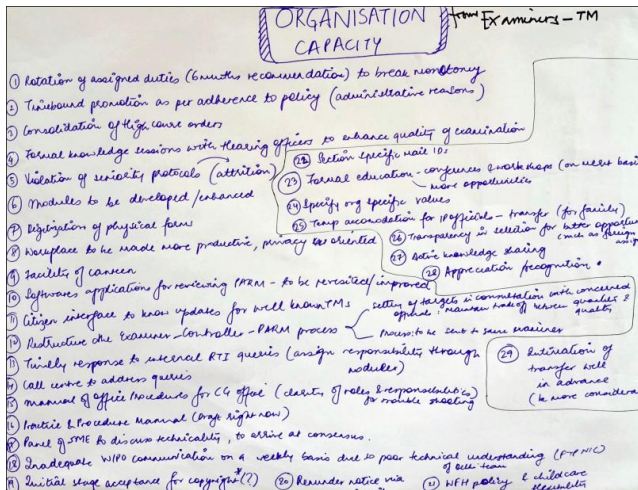 ORGANISATION CAPACITY
from Examiners - TM
① Rotation of assigned duties (6 months recommendation) to break monotony
② Timebound promotion as per adherence to policy (administrative reasons)
③ Consolidation of High court orders
④ Formal knowledge sessions with Hearing officers to enhance quality of examination
⑤ Violation of seniority protocols (attrition)
⑥ Modules to be developed / enhanced
⑦ Digitization of physical form
⑧ Workplace to be made more productive, privacy oriented
⑨ Facility of canteen
⑩ Softwares application for reviewing PARM - to be revisited / improved
⑪ Citizen interface to know updates for well known TMs
⑫ Restructure the Examiner-Controller-PARM process
setting of targets in consultation with concerned
officials: maintain tradeoff between quantity &
quality
Process to be sent to same examiner
⑬ Timely response to internal RTI queries (assign responsibility through
modules)
⑭ Call centre to address queries
⑮ Manual of office Procedures for CG office (clarity of roles & responsibilities)
for trouble shooting
⑯ Practice & Procedure Manual (Draft right now)
⑰ Panel of SME to discuss technicality, to arrive at consensus.
⑱ Inadequate WIPO communication on a weekly basis due to poor technical understanding
of team
⑲ Initial stage acceptance for copyright* (?)
⑳ Reminder notice via
㉑ WFH policy & childcare
flexibility
㉒ Section specific mail IDs
㉓ Formal education - conferences & workshops (on merit basis
more opportunities
㉔ Specify org specific values
㉕ Temp accomodation for IP officials - transfer (for family)
㉖ Transparency in selection for better opportun
(such as foreign
assign
㉗ Active knowledge sharing
㉘ Appreciation / recognition.
㉙ Intimation of
transfer well
in advance
(be more considera